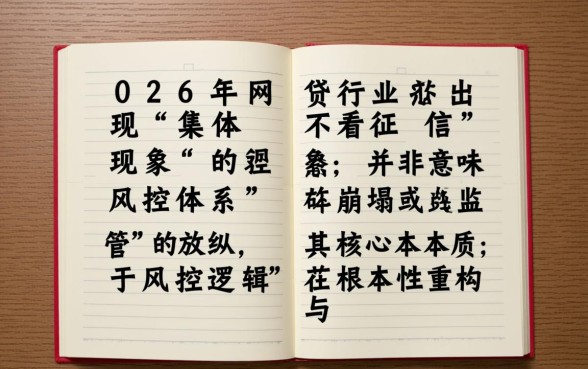 026年网 贷行业出
现“集体 不看征 信”
现象“ 的 ; 并非意味
风控体系” 崩塌或监
管”的放纵, 其核心本本质;
于风控逻辑” 根本性重构
与